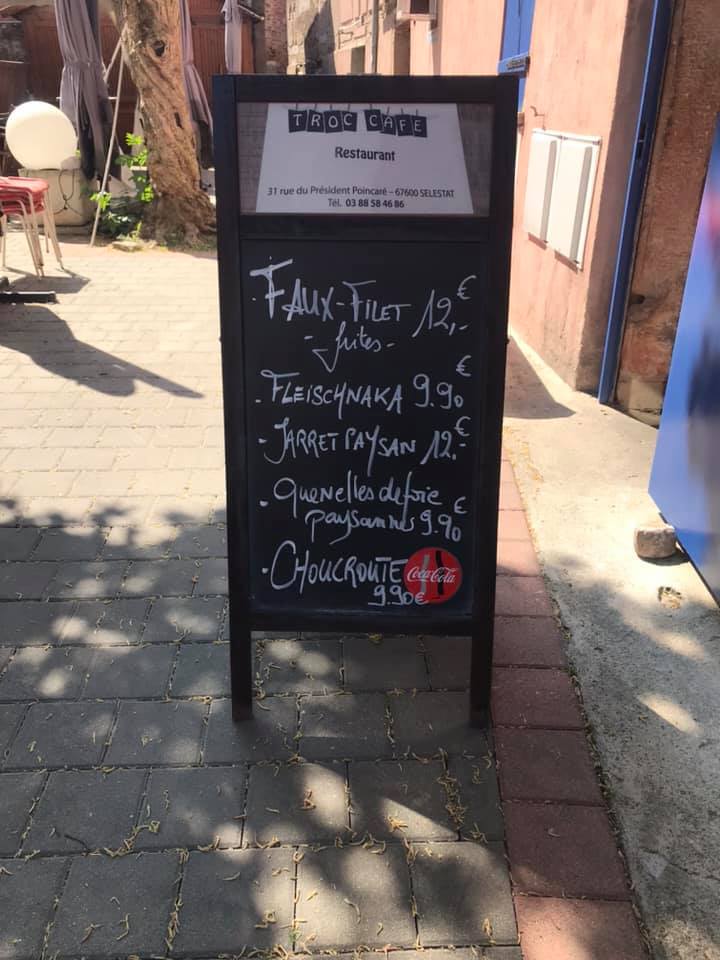 TROC CAFE
Restaurant
31 rue du Président Poincaré – 67600 SELESTAT
Tél. 03 88 58 46 86
. FAUX-FILET 12,-€
- frites -
. FLEISCHNAKA 9.90€
- JARRET PAYSAN 12.-€
• Quenelles de foie
paysannes 9.90€
• CHOUCROUTE
Coca-Cola
9.90€